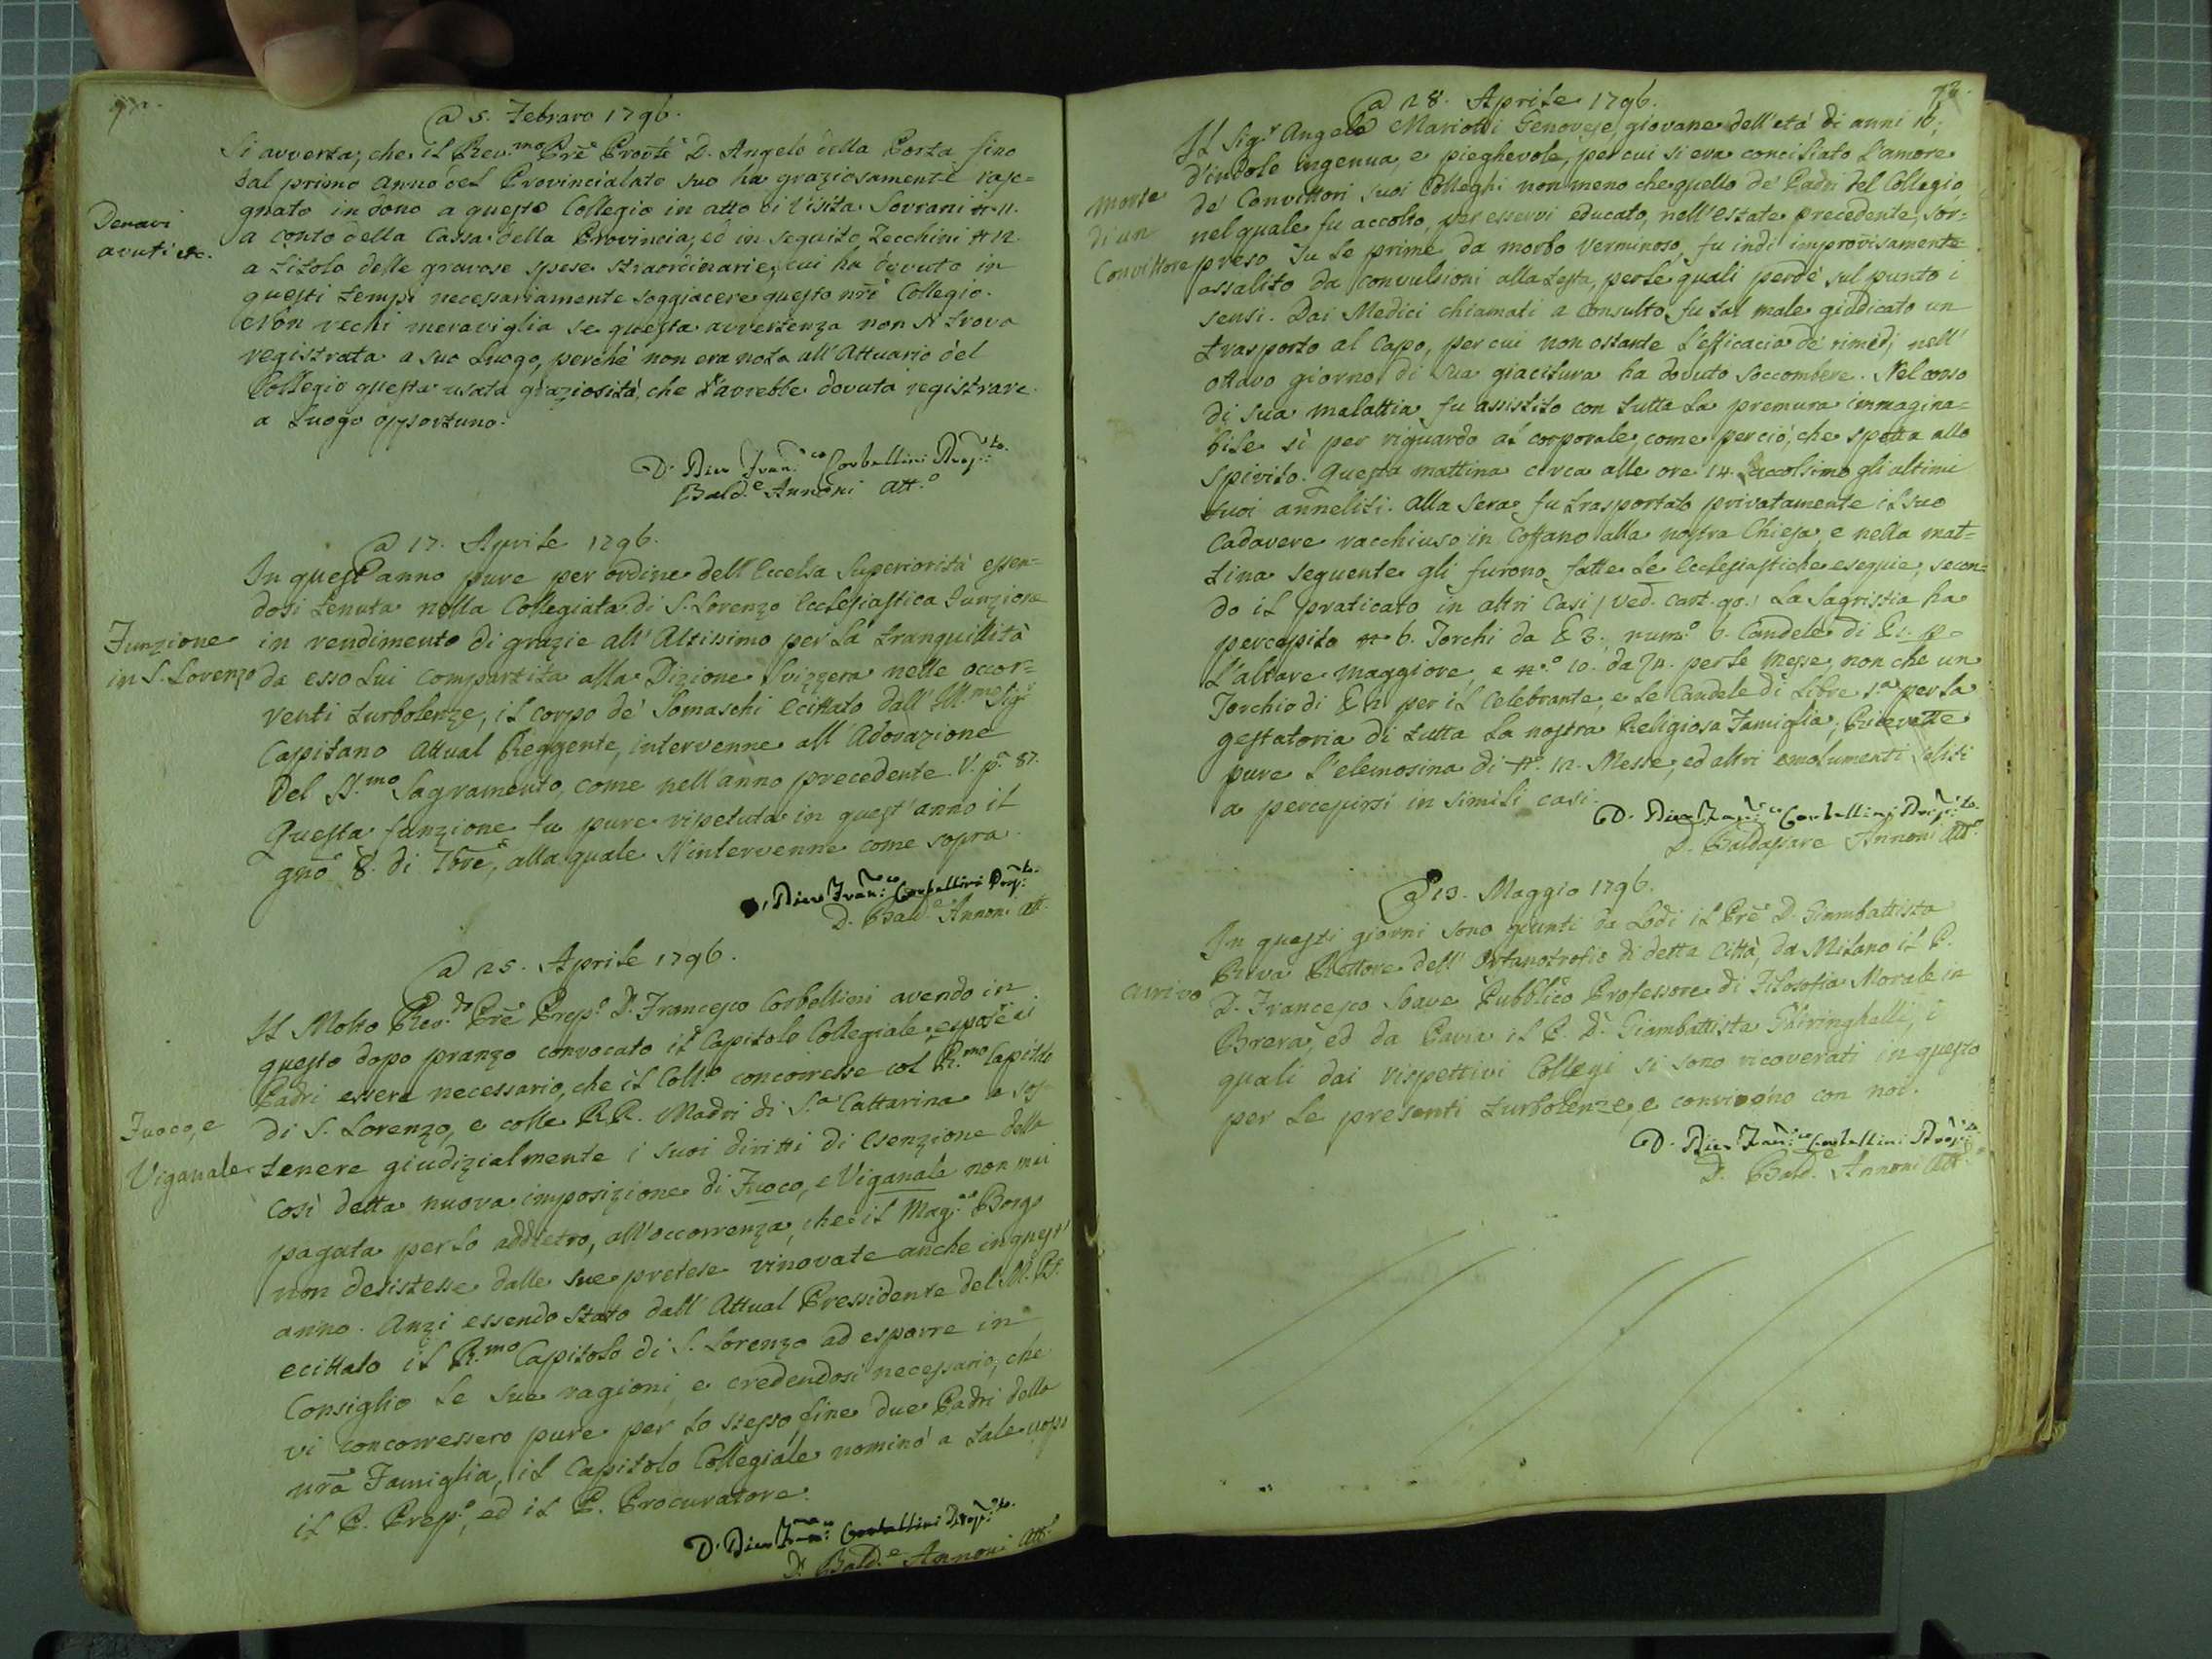 92.
a 5. Febraro 1796.
Si averta, che il Rev.mo Prē Provle D. Angelo della Porta fino
dal primo anno del Provincialato suo ha graziosamente rase-
gnato in dono a questo Collegio in atto di Visita Sovrani n. 11.
Denari
avuti etc.
a conto della Cassa della Provincia, ed in seguito Zecchini n. 12
a titolo delle gravose spese straordinarie, cui ha dovuto in
questi tempi necessariamente soggiacere questo nrō Collegio.
Non rechi meraviglia se questa avvertenza non si trova
registrata a suo Luogo, perchè non era nota all'Attuario del
Collegio questa usata graziosità, che l'avrebbe dovuta registrare
a luogo opportuno.
D. Pier Fran.co Corbellini Prep.to
Bald.e Annoni Att.o
a 17. Aprile 1796.
In quest'anno pure per ordine dell'Eccelsa Superiorità essen-
dosi tenuta nella Collegiata di S. Lorenzo Ecclesiastica Funzione
Funzione
in S. Lorenzo
in rendimento di grazie all'Altissimo per la tranquillità
da esso Lui compartita alla Dizione Svizzera nelle occor-
renti turbolenze, il corpo de' Somaschi ecittato dall'Ill.mo Sig.r
Capitano Attual Reggente, intervenne all'Adorazione
del SS.mo Sagramento, come nell'anno precedente. V. p. 87.
Questa funzione fu pure ripetuta in quest'anno il
gnō 8. di 7bre, alla quale s'intervenne come sopra.
D. Pier Fran.co Corbellini Prep.to
D. Bald.e Annoni Att.
a 25. Aprile 1796.
Il Molto Rev.do Prē Prep.o D. Francesco Corbellini avendo in
questo dopo pranzo convocato il Capitolo Collegiale, espose ai
Padri essere necessario, che il Coll.o concorresse col R.mo Capitolo
di S. Lorenzo, e colle RR. Madri di S.a Cattarina a sos-
Fuoco, e
Viganale
tenere giudizialmente i suoi diritti di Esenzione della
così detta nuova imposizione di Fuoco, e Viganale non mai
pagata per lo addietro, all'occorrenza, che il Mag.co Borgo
non desistesse dalle sue pretese rinovate anche in quest'
anno. Anzi essendo stato dall'Attual Pressidente del M. B.
ecittato il R.mo Capitolo di S. Lorenzo ad esporre in
Consiglio le sue ragioni, e credendosi necessario, che
vi concorressero pure per lo stesso fine due Padri della
nrā Famiglia, il Capitolo Collegiale nominò a tale uopo
il P. Prep.o, ed il P. Procuratore.
D. Pier Fran.co Corbellini Prep.to
D. Bald.e Annoni Att.o
93.
a 28. Aprile 1796.
Il Sig.r Angelo Mariotti Genovese, giovane dell'età di anni 16,
d'indole ingenua, e pieghevole, per cui si era conciliato l'amore
Morte
di un
Convittore
de' Convittori suoi Colleghi non meno che quello de' Padri del Collegio
nel quale fu accolto, per esservi educato, nell'estate precedente, sor-
preso su le prime da morbo verminoso, fu indi improvisamente
assalito da convulsioni alla testa, per le quali perdè sul punto i
sensi. Dai Medici chiamati a consulto fu tal male giudicato un
trasporto al Capo, per cui non ostante l'efficacia de' rimedj nell'
ottavo giorno di sua giacitura ha dovuto soccombere. Nel corso
di sua malattia fu assistito con tutta la premura immagina-
bile sì per riguardo al corporale, come perciò, che spetta allo
spirito. Questa mattina circa alle ore 14. raccolsimo gli ultimi
suoi anneliti. Alla sera fu trasportato privatamente il suo
Cadavere racchiuso in Coffano alla nostra Chiesa, e nella mat-
tina seguente gli furono fatte le Ecclesiastiche esequie, secon-
do il praticato in altri Casi / ved. cart. 90. / La Sagristia ha
percepito n. 6. Torchi da £ 3. num.o 6. Candele di £ 1. p.
l'altare maggiore, e n.o 10. da 74. per le Messe, non che un
Torchio di £ 2 per il Celebrante, e le Candele di Libre 1.a per la
gestatoria di tutta la nostra Religiosa Famiglia. Ricevette
pure l'elemosina di n.o 12. Messe, ed altri emolumenti soliti
a percepirsi in simili casi.
D. Pier Fran.co Corbellini Prep.to
D. Baldassare Annoni Att.o
a 13. Maggio 1796.
In questi giorni sono giunti da Lodi il Prē D. Giambattista
Riva Rettore dell'Orfanotrofio di detta Città, da Milano il P.
Arrivo
D. Francesco Soave Pubblico Professore di Filosofia Morale in
Brera, ed da Pavia il P. D. Giambattista Ghiringhelli, i
quali dai rispettivi Collegi si sono ricoverati in questo
per le presenti turbolenze, e convivono con noi.
D. Pier Fran.co Corbellini Prep.to
D. Bald.e Annoni Att.o